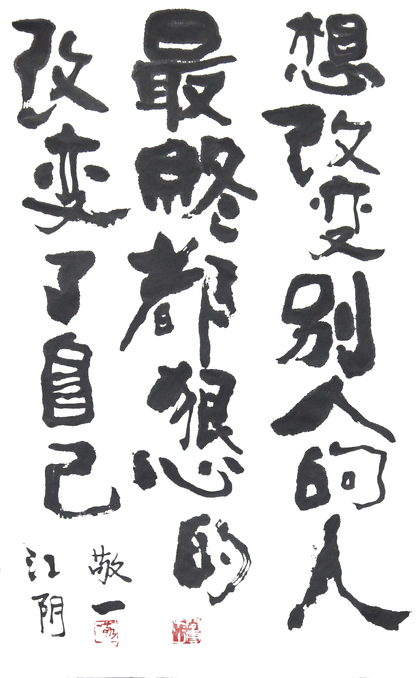 想改变别人的人
最终都狠心的
改变了自己
敬一
江阴